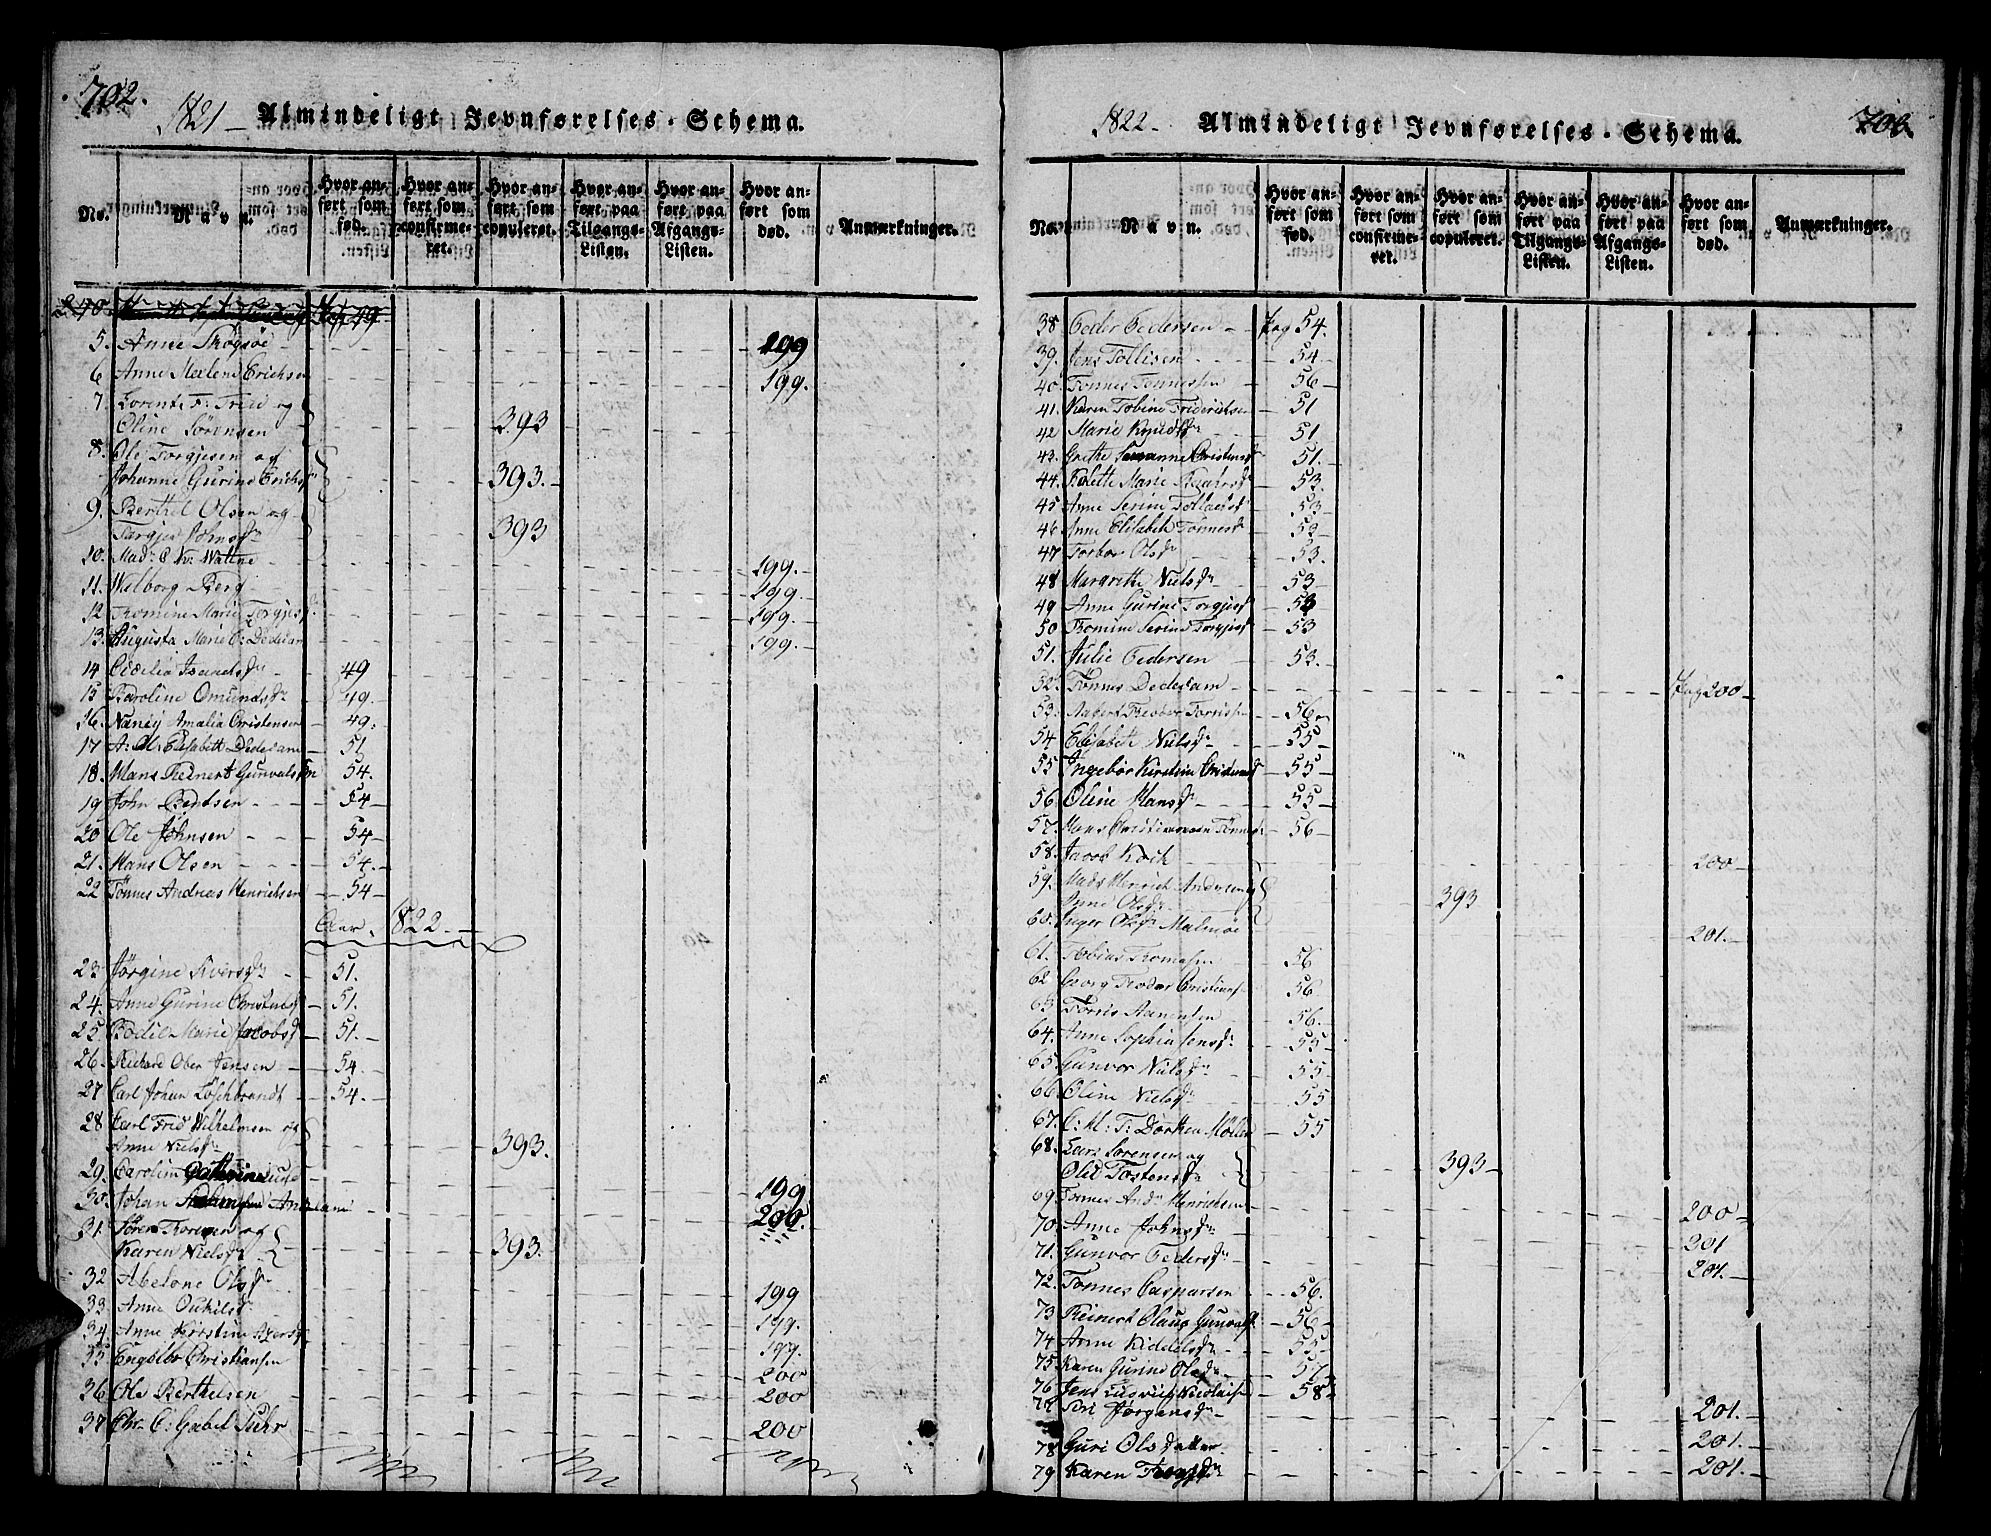 702.
1821 – Almindeligt Jevnførelses-Schema.
No. Navn. Hvor anført som fød. Hvor anført som confirmeret. Hvor anført som copuleret. Hvor anført paa Tilgangs-Listen. Hvor anført paa Afgangs-Listen. Hvor anført som død. Anmærkninger.
5. Anne 199
6 Anne Malene Erichsen 199.
7. Lorents F: og
Oline Sörensen 393
8. Ole Torgjesen og
Johanne Gurine Erichsd 393.
9. Berthel Olsen og
Targjer Johnsdr 393
10. Mad: C. 199.
11. Walborg Berg 199.
12 Tromine Marie Torgjesd. 199.
13. Augusta Marie C: Dedekam 199.
14 Cicelia 49
15 Karoline Omundsdr 49.
16. Nancy Amalia Christensen 49.
17 A: M: Elisabeth Dedekam 51
18. Hans Reinert Gunvalsen 54.
19 John Bentsen 54
20 Ole Johnsen 54
21. Hans Olsen 54.
22 Tönnes Andreas Henrichsen 54
Aar 1822.
23 Jörgine Iversdr 51.
24. Anne Gurine Christensd 51.
25. Bodil Marie Jacobsd 51.
26. Richard Ober Jensen 54.
27 Carl Johan Löschbrandt 54.
28 Carl Frid Wilhelmsen og
Anne Nielsdr 393.
29. Carolin Cathrine 199
30. Johan 200.
31. Sören og
Karen Nielsdr 393.
32 Abelone Olsdr 199
33 Anne 199.
34 Anne Kirstine 199.
35 Engelbr Christiansen 200
36 Ole Berthelsen 200
37 Chr. C: Gabel Suhr 200
1822. Almindeligt Jevnførelses-Schema. 703
No. Navn. Hvor anført som fød. Hvor anført som confirmeret. Hvor anført som copuleret. Hvor anført paa Tilgangs-Listen. Hvor anført paa Afgangs-Listen. Hvor anført som død. Anmærkninger.
38 Peder Pedersen Pag 54.
39. Jens Tollisen 54
40. Tönnes Tönnessen 56
41. Karen Tobine Friderichsen 51
42 Marie Knudsdr 51
43. Grethe Susanne Christensd 51.
44. Marie 53.
45 Anne Serine 53
46 Anne Elisabeth Tönnesd 52
47 Torbor Olsdr 53.
48 Margrethe Nielsdr 53
49 Anne Gurine Torgjesd 53
50 Tromine Serine Torgjesd 53
51. Julie Pedersen 53.
52. Tönnes Dedekam Pag 200
53. 56
54 Elisabeth Nielsdr 55
55 Ingebor Kirstine Christensd 55
56. Oline Hansdr 55
57. Hans 56
58. Jacob Koch 200
59. Mads Henrich Andersen og
Anne Olsdr 393
60. Inger Olsdr Malmöe 201.
61. Tobias Thomasen 56
62 Georg Theodor Christians 56
63 Torris Aanensen 56.
64. Anne Sophia Jensdr 55
65. Gunvor Nielsdr 55
66. Oline Nielsdr 55
67. C: M: T: Möller 55
68. Lars Sorensen og
Tostensdr 393
69 Tönnes Andr Henrichsen 200
70. Anne Johnsdr 201
71. Gunvor Pedersdr 201.
72. Tönnes Caspersen 56.
73 Reinert Olaus Gunvals 56
74 Anne Kiddelsdr 55
75 Karen Gurine Olsdr 57.
76 Jens Ludvig Nicolais 58
77 Siri Jørgensdr 201.
78 Guri Olsdatter 201.
79 Karen 201.